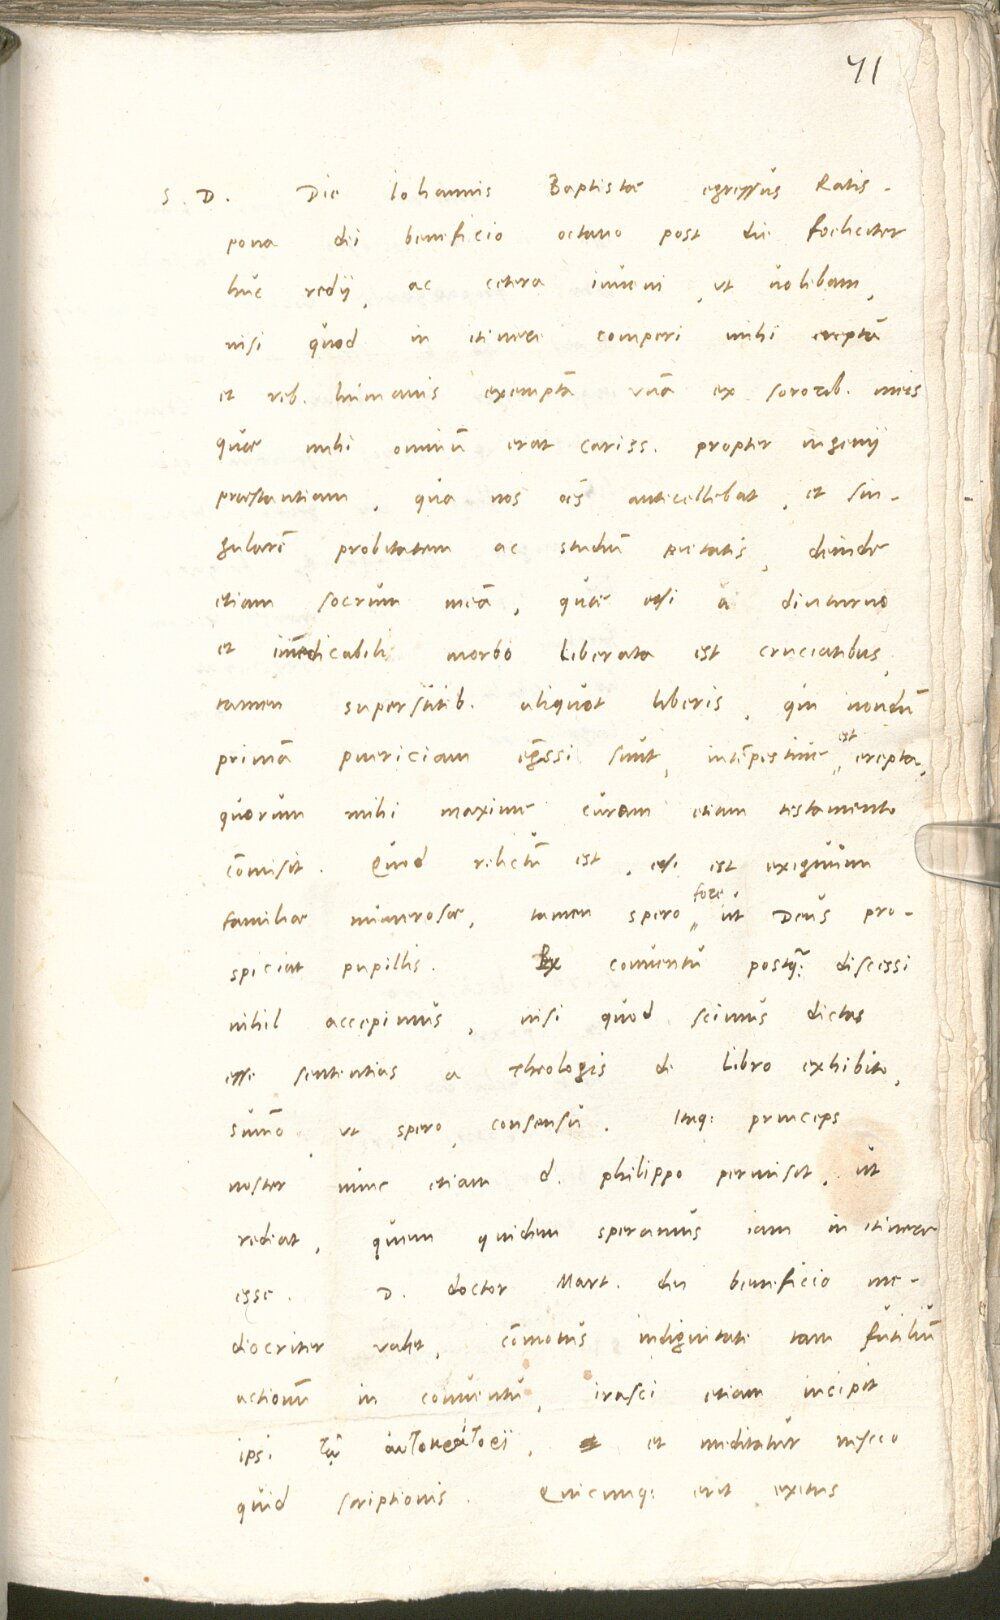 71
S. D. Die Iohannis Baptistæ egressus Ratis-
pona dei beneficio octauo post die foeliciter
huc redij, ac cetera inueni, ut uolebam,
nisi quod in itinere comperi mihi ereptā
et reb. humanis exemptā vnā ex sororib. meis
quæ mihi omniū erat cariss. propter ingenij
præstantiam, qua nos oēs antecellebat, et sin-
gularē probitatem ac studiū pietatis, deinde
etiam socrum meā, quæ etsi a diuturno
et immedicabilis morbo liberata est cruciatibus,
tamen superstitib. aliquot liberis, qui nondū
primā puericiam egressi sunt, intēpestiue est erepta,
quorum mihi maxime curam etiam testamento
cōmisit. Quod relictū est, etsi est exiguum
familiæ numerosæ, tamen spero fore, ut Deus pro-
spiciat pupillis. Ex conuentu postq̃; discessi
nihil accepimus, nisi quod scimus dictas
esse sententias a Theologis de Libro exhibito,
summo, ut spero, consensu. Itaq; princeps
noster nunc etiam d. philippo permisit, ut
rediat, quem quidem speramus iam in itinere
esse. D. doctor Mart. dei beneficio me-
diocriter valet, cōmotus indignitate tam futiliū
actionū in conuentu, irasci etiam incipit
ipsi τῷ ἀυτοκράτορι, et meditatur nescio
quid scriptionis. Quicunq; erit exitus